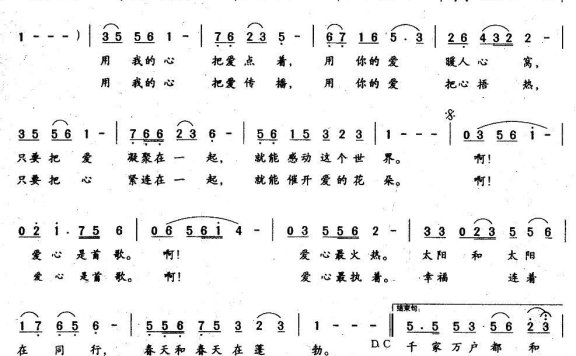 1 - - - ) | 35 56 1 - | 76 23 5 - | 67 16 5 . 3 | 26 432 2 - |
用 我的 心 把爱 点 着, 用 你的 爱 暖人 心 窝,
用 我的 心 把爱 传 播, 用 你的 爱 把心 捂 热,
35 56 1 - | 766 23 6 - | 56 15 323 | 1 - - - | 03 56 i - |
只要 把 爱 凝聚在 一 起, 就能 感动 这个世 界。 啊!
只要 把 心 紧连在 一 起, 就能 催开 爱的花 朵。 啊!
02 i . 75 6 | 06 56i 4 - | 03 556 2 - | 33 023 55 6 |
爱 心 是首 歌。 啊! 爱 心最火 热。 太阳 和 太阳
爱 心 是首 歌。 啊! 爱 心最执 着。 幸福 连着
结束句。
17 65 6 - | 556 75 323 | 1 - - - || 5 . 5 53 56 23 |
在 同 行, 春天和 春天 在 蓬 勃。 D.C 千 家 万户 都 和